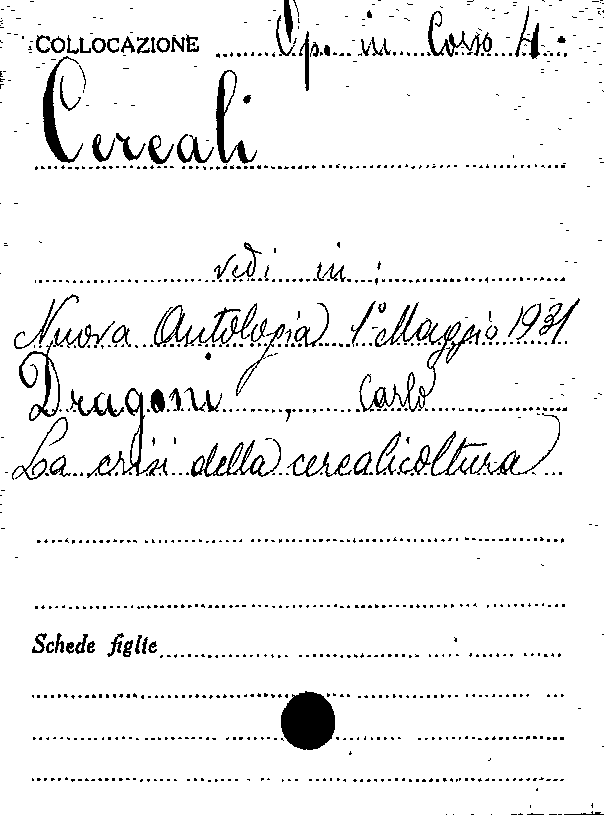 COLLOCAZIONE Op. in Corso 4.
Cereali
vedi in :
Nuova Antologia 1° Maggio 1931
Dragoni, Carlo
La crisi della cerealicoltura
Schede figlie